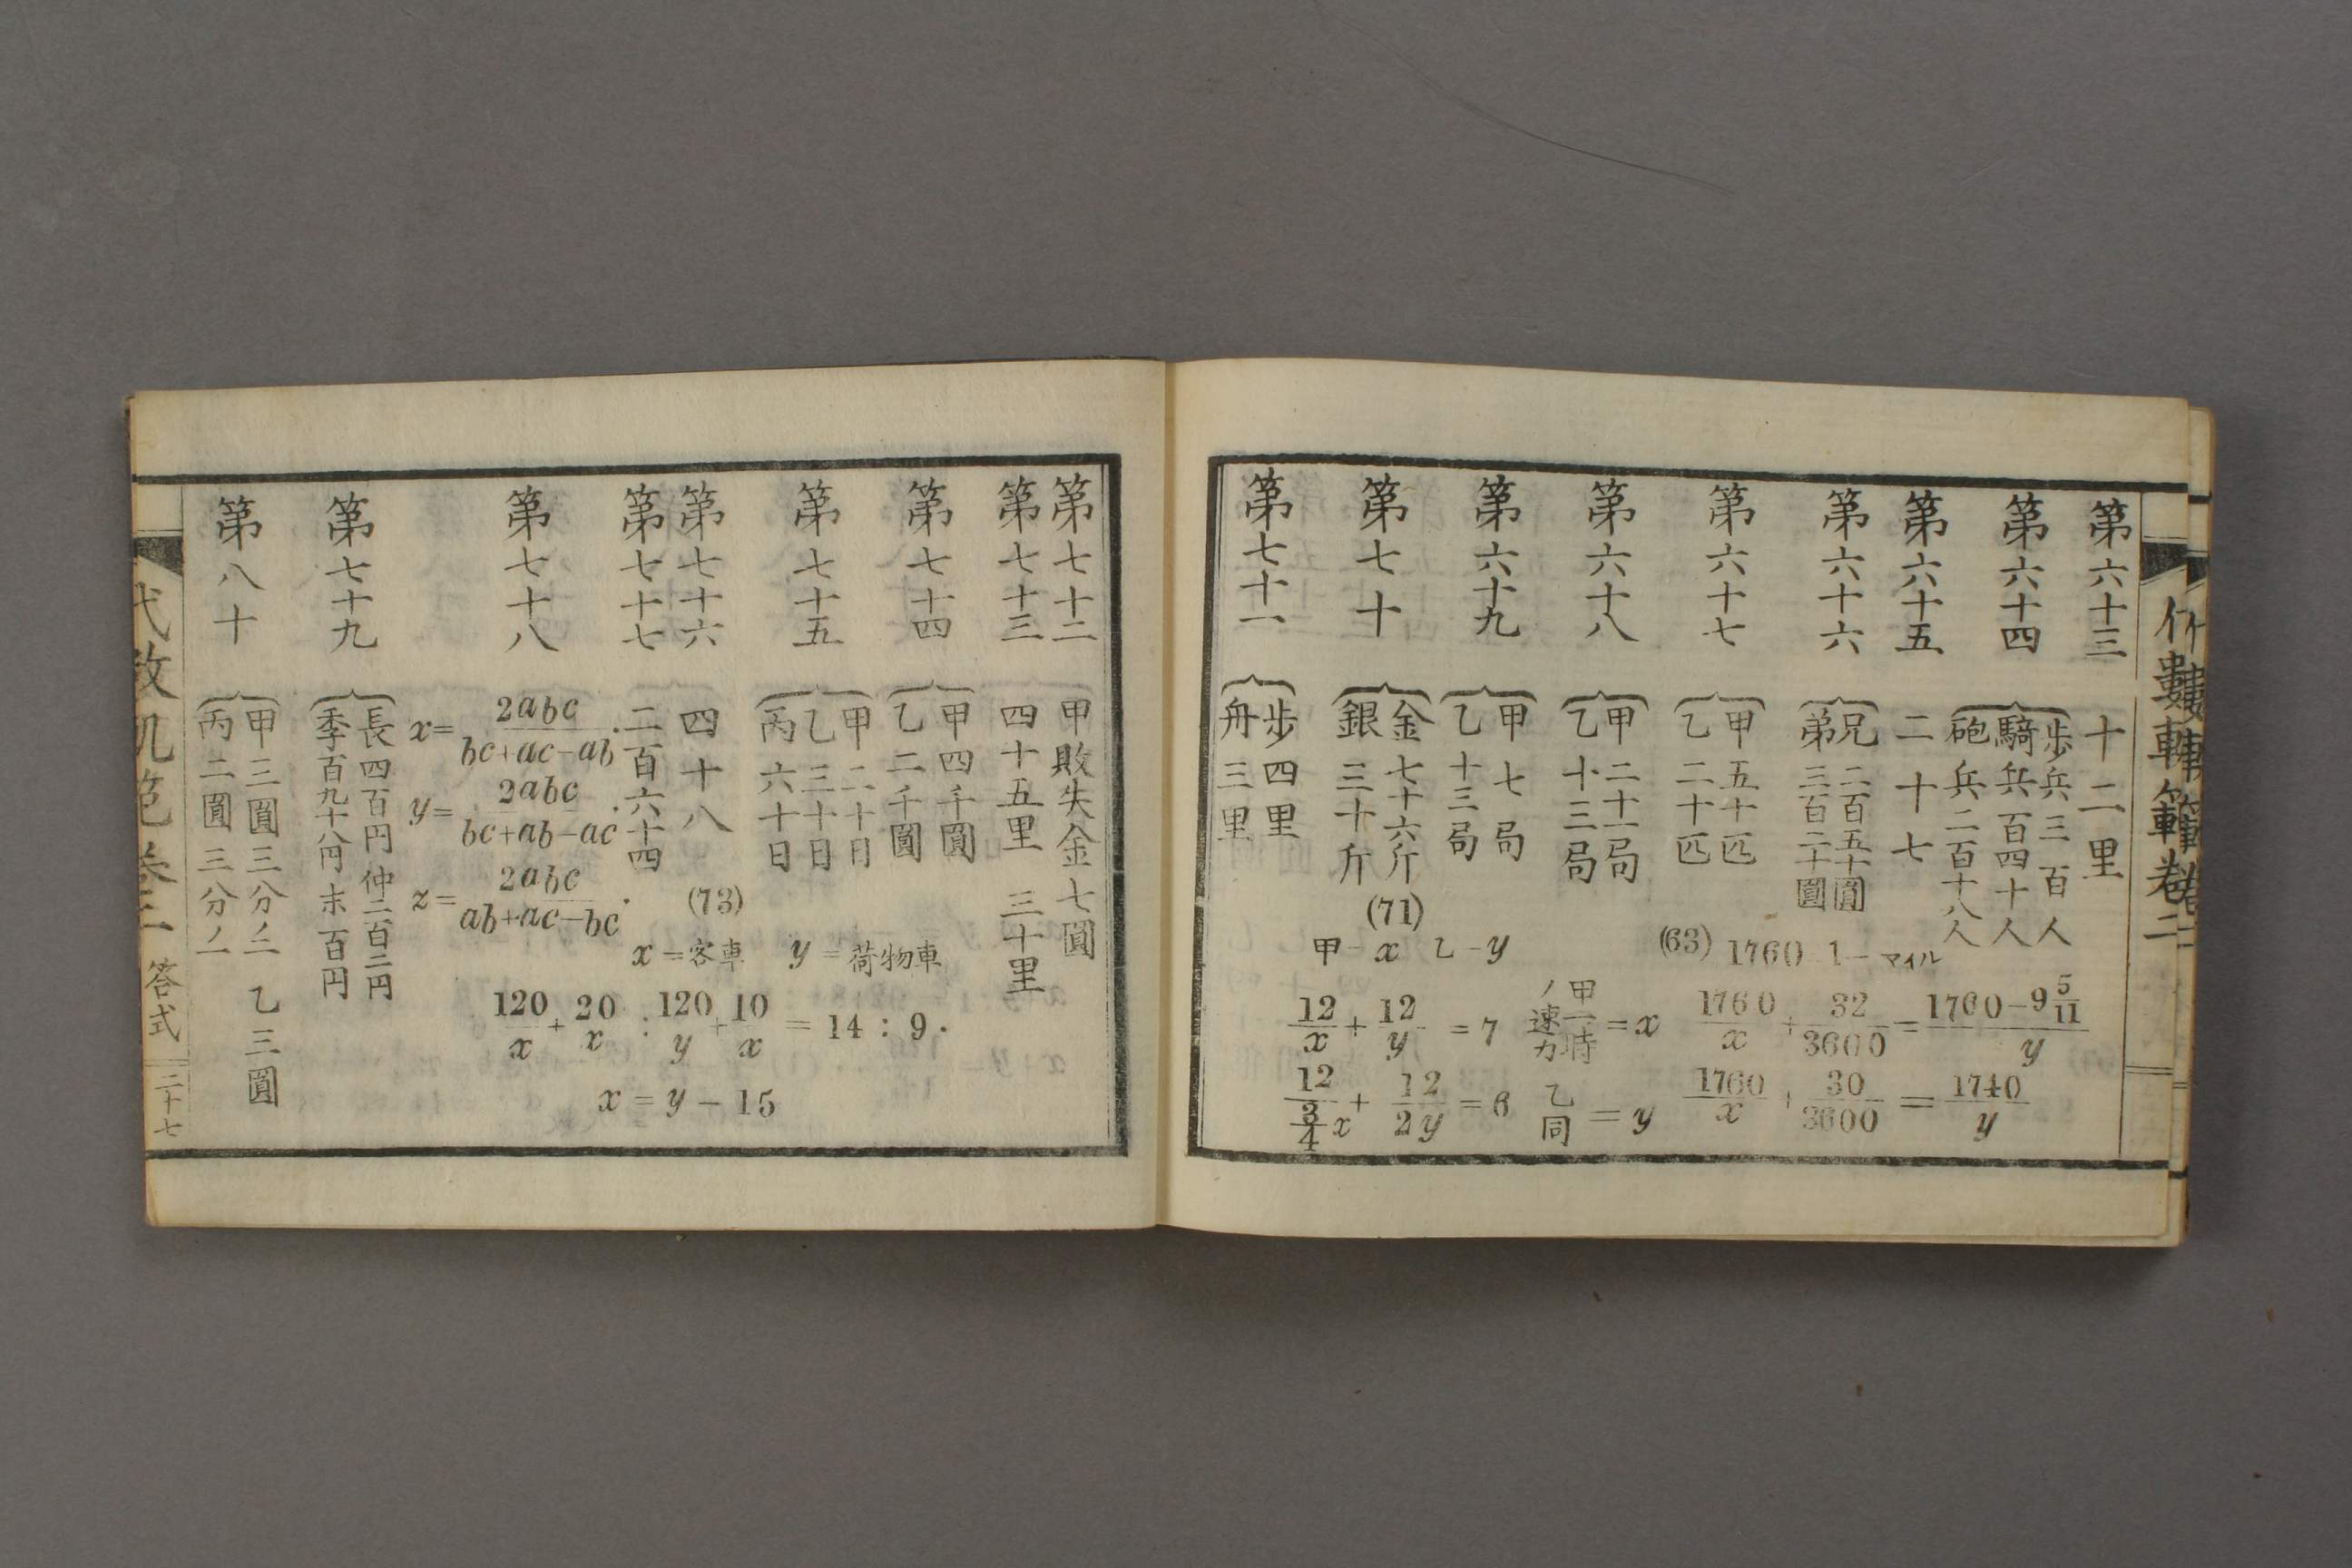 第六十三 十二里
第六十四 歩兵三百人
騎兵百四十人
砲兵二百十八人
第六十五 二十七
第六十六 兄二百五十圓
弟三百二十圓
第六十七 甲五十匹
乙二十匹
第六十八 甲二十一局
乙十三局
第六十九 甲七局
乙十三局
第七十 金七十六斤
銀三十斤
第七十一 歩四里
舟三里
(63) 1760 1-マイル
1760/x + 32/3600 = 1760-9 5/11 / y
1760/x + 30/3600 = 1740/y
(71)
甲-x 乙-y
12/x + 12/y = 7 甲一時ノ速力=x
12/(3/4 x) + 12/2y = 6 乙同=y
第七十二 甲敗失金七圓
第七十三 四十五里 三十里
第七十四 甲四千圓
乙二千圓
第七十五 甲二十日
乙三十日
丙六十日
第七十六 四十八
第七十七 二百六十四
第七十八
x= 2abc/bc+ac-ab.
y= 2abc/bc+ab-ac.
z= 2abc/ab+ac-bc.
第七十九 長四百円 仲二百二円
季百九十八円 末百円
第八十 甲三圓三分ノ二 乙三圓
丙二圓三分ノ一
(73)
x=客車 y=荷物車
120/x + 20/x : 120/y + 10/x = 14 : 9.
x = y - 15
答式 二十七